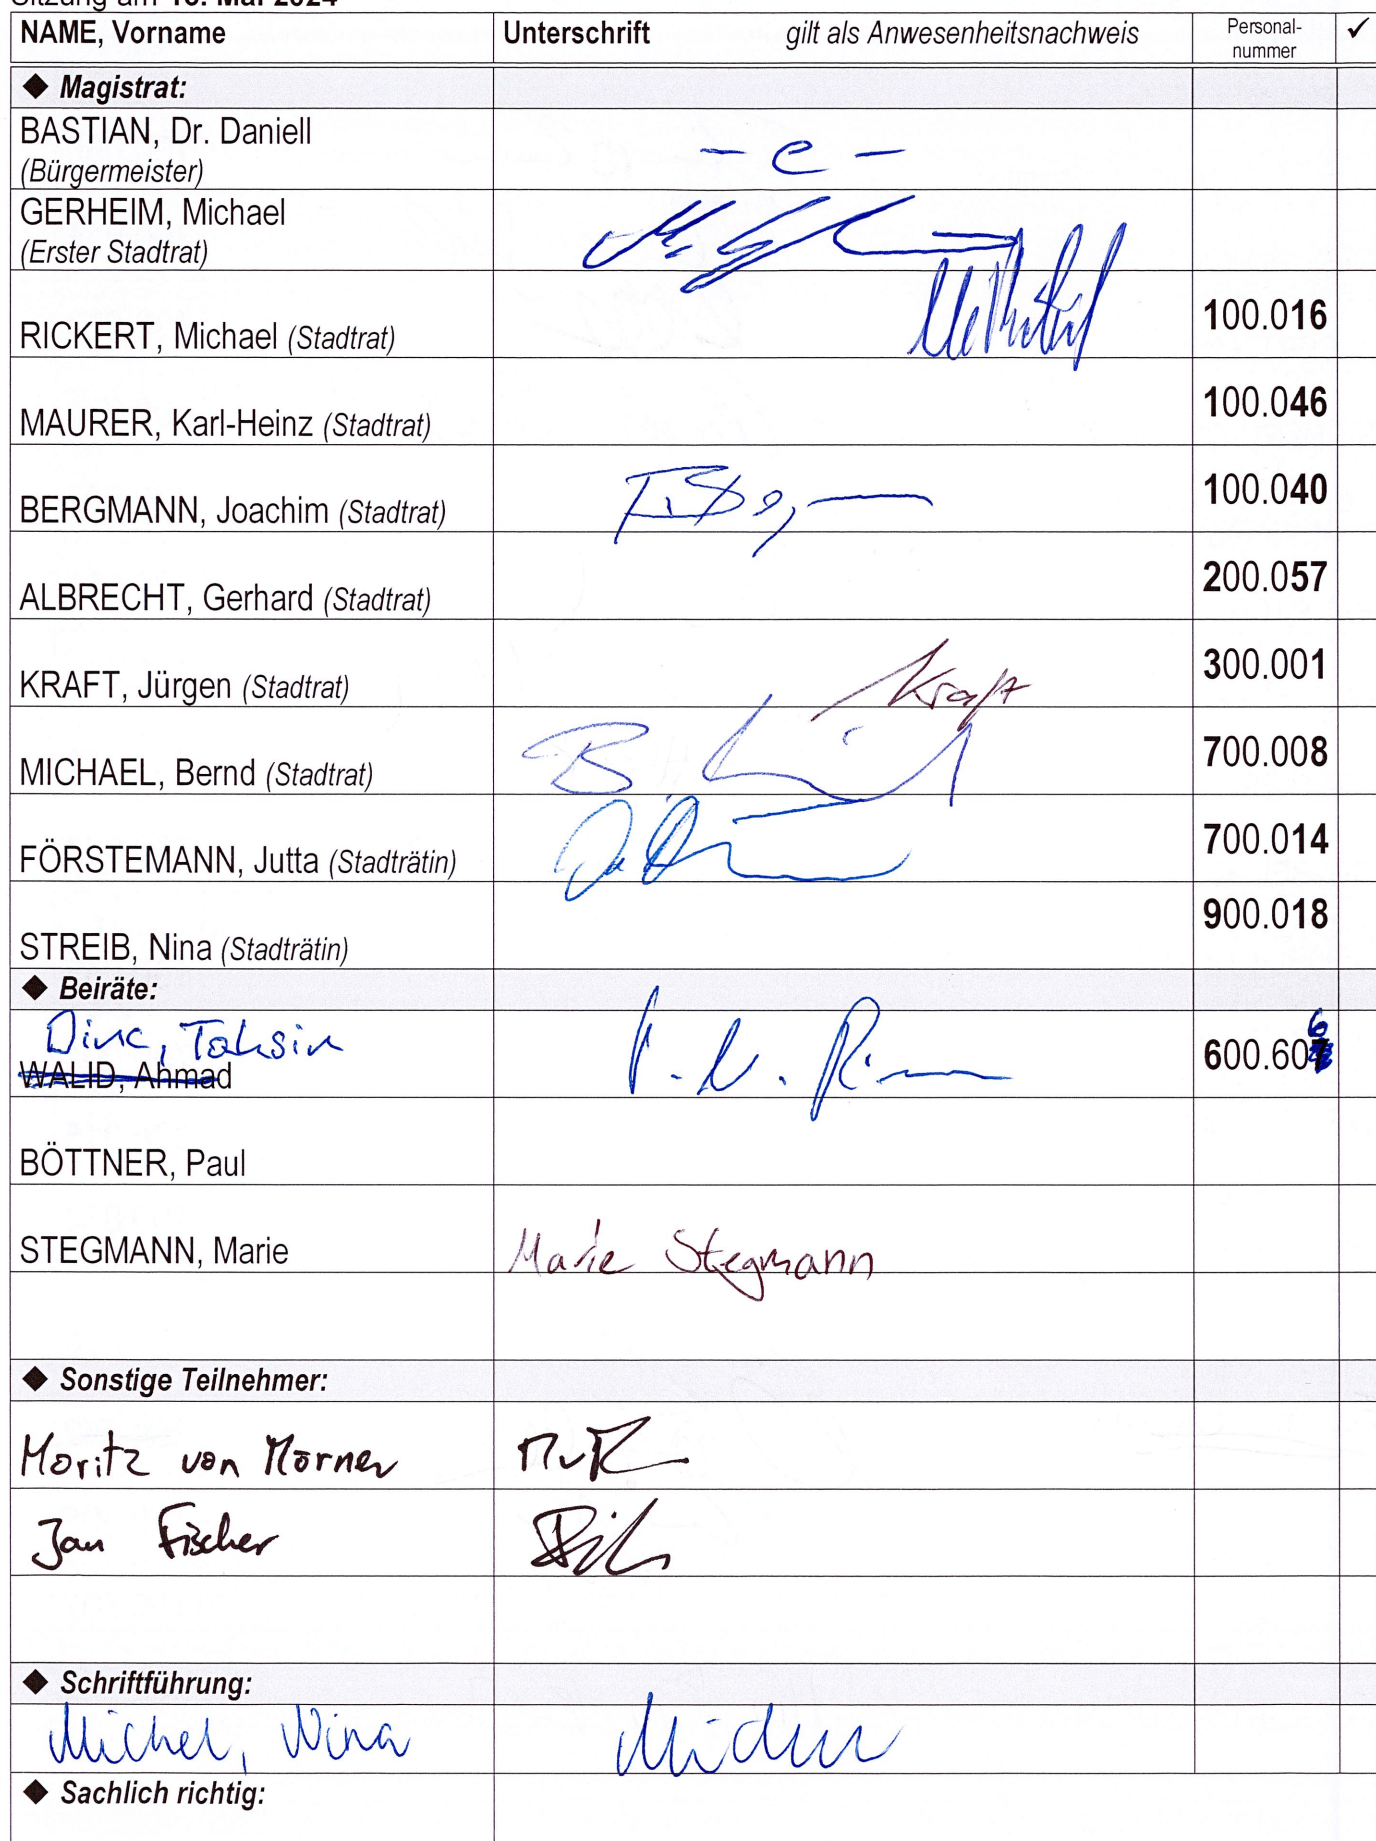 NAME, Vorname Unterschrift gilt als Anwesenheitsnachweis Personal-nummer ✓
◆ Magistrat:
BASTIAN, Dr. Daniell
(Bürgermeister) - e -
GERHEIM, Michael
(Erster Stadtrat)
RICKERT, Michael (Stadtrat) 100.016
MAURER, Karl-Heinz (Stadtrat) 100.046
BERGMANN, Joachim (Stadtrat) 100.040
ALBRECHT, Gerhard (Stadtrat) 200.057
KRAFT, Jürgen (Stadtrat) Kraft 300.001
MICHAEL, Bernd (Stadtrat) 700.008
FÖRSTEMANN, Jutta (Stadträtin) 700.014
STREIB, Nina (Stadträtin) 900.018
◆ Beiräte:
Dinc, Tahsin
WALID, Ahmad 600.606
BÖTTNER, Paul
STEGMANN, Marie Marie Stegmann
◆ Sonstige Teilnehmer:
Moritz von Mörner
Jan Fischer
◆ Schriftführung:
Michel, Nina
◆ Sachlich richtig: